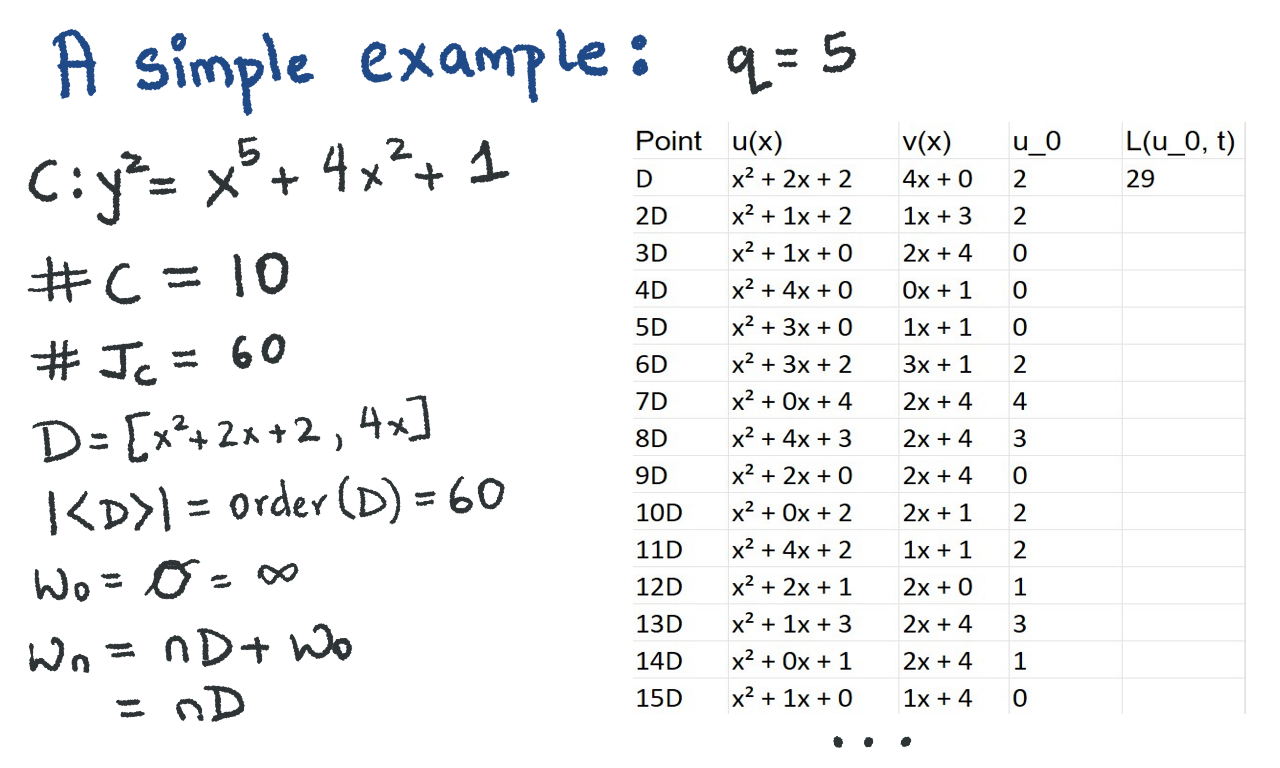 A simple example: q = 5
C: y² = x⁵ + 4x² + 1
# C = 10
# J_C = 60
D = [x² + 2x + 2, 4x]
|<D>| = order(D) = 60
W₀ = O = ∞
Wₙ = nD + W₀
= nD
Point u(x) v(x) u_0 L(u_0, t)
D x² + 2x + 2 4x + 0 2 29
2D x² + 1x + 2 1x + 3 2
3D x² + 1x + 0 2x + 4 0
4D x² + 4x + 0 0x + 1 0
5D x² + 3x + 0 1x + 1 0
6D x² + 3x + 2 3x + 1 2
7D x² + 0x + 4 2x + 4 4
8D x² + 4x + 3 2x + 4 3
9D x² + 2x + 0 2x + 4 0
10D x² + 0x + 2 2x + 1 2
11D x² + 4x + 2 1x + 1 2
12D x² + 2x + 1 2x + 0 1
13D x² + 1x + 3 2x + 4 3
14D x² + 0x + 1 2x + 4 1
15D x² + 1x + 0 1x + 4 0
...